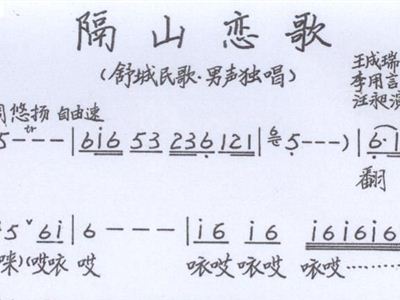 隔山恋歌
(舒城民歌·男声独唱)
王成瑞
李用言
汪昶演
悠扬 自由速
5 - - - | 6i6 53 236 121 | 5 - - - ) | 6·1
翻
5 ˅ 6i | 6 - - - | i6 i6 i6i6i6
咪)(哎咴 哎 咴哎 咴哎 咴哎………